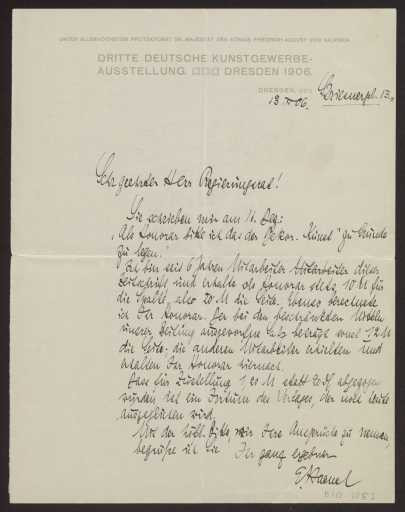 UNTER ALLERHÖCHSTEM PROTEKTORAT SR. MAJESTÄT DES KÖNIGS FRIEDRICH AUGUST VON SACHSEN.
DRITTE DEUTSCHE KUNSTGEWERBE-
AUSSTELLUNG. DRESDEN 1906.
DRESDEN, DEN
13. 06.
Sehr geehrter Herr Regierungsrat!
Sie schrieben mir am 11. Dez:
„Als Honorar bitte ich das der Dekor. Kunst" zu Grunde
zu legen.
Ich bin seit 6 Jahren Mitarbeiter dieser
Zeitschrift und erhalte als Honorar stets 10 M für
die Spalte, also 20 M die Seite. Ebenso berechnete
ich Ihr Honorar. Der bei den
unserer Zeitung
die Seite, die anderen Mitarbeiter erhielten und
erhalten Ihr Honorar hiernach.
Dass für Zustellung 1,20 M statt 20 abgezogen
wurden ist ein Irrtum des Verlages, der noch heute
ausgeglichen wird.
Mit der höfl. Bitte mir Ihre Ansprüche zu nennen,
begrüße ich Sie Ihr ganz ergebner
E. Haenel